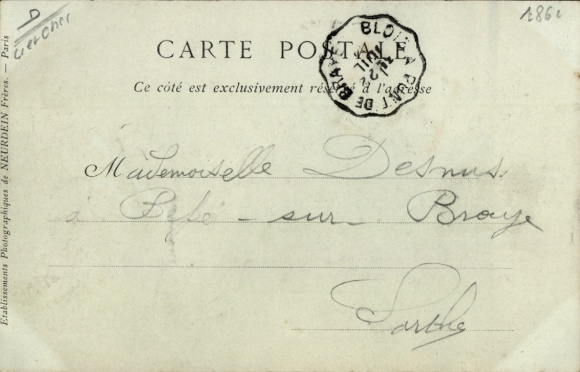 D
Loir et Cher
CARTE POSTALE
Ce côté est exclusivement réservé à l'adresse
BLOIS A PONT DE BRAYE
JUIL
Mademoiselle Desnus
à Bessé-sur Braye
Sarthe
Etablissements Photographiques de NEURDEIN Frères. — Paris